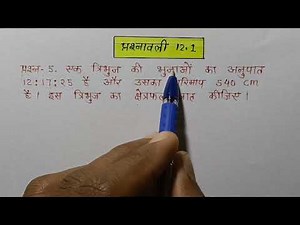 प्रश्नावली 12.1
प्रश्न-5. एक त्रिभुज की भुजाओं का अनुपात
12:17:25 है और उसका परिमाप 540 cm
है। इस त्रिभुज का क्षेत्रफल ज्ञात कीजिए।